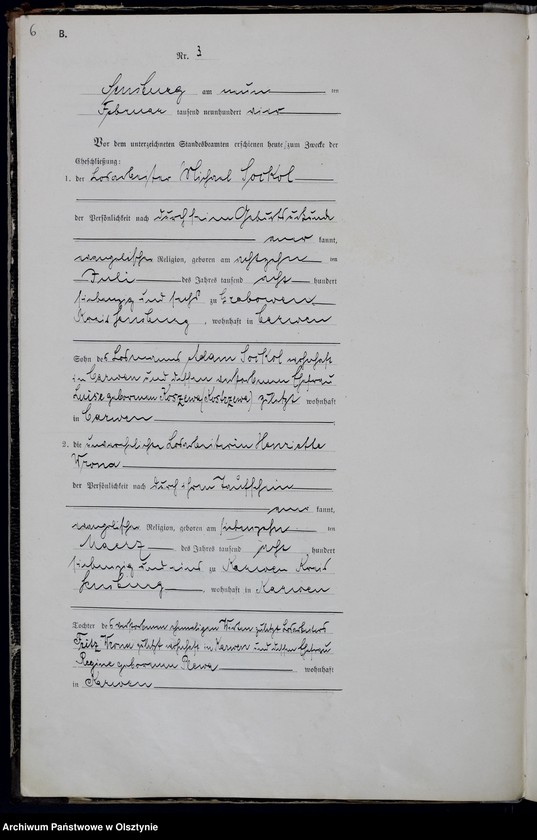 6
B.
Nr. 3
Sensburg am neun ten
Februar tausend neunhundert vier
Vor dem unterzeichneten Standesbeamten erschienen heute zum Zwecke der
Eheschließung:
1. der Losarbeiter Michael Sockol
der Persönlichkeit nach durch seine Geburtsurkunde
aner kannt,
evangelischer Religion, geboren am achtzehn ten
Juli des Jahres tausend acht hundert
siebenzig und sechs zu Grabowen
Kreis Sensburg, wohnhaft in Carwen
Sohn des Losmanns Adam Sockol wohnhaft
in Carwen und dessen verstorbenen Ehefrau
Luise geborenen zuletzt wohnhaft
in Carwen
2. die unverehelichte Losarbeiterin Henriette
Krona
der Persönlichkeit nach durch ihren Taufschein
aner kannt,
evangelischer Religion, geboren am siebenzehn ten
Maerz des Jahres tausend acht hundert
siebenzig und eins zu Karwen Kreis
Sensburg, wohnhaft in Karwen
Tochter des verstorbenen ehemaligen Wirten zuletzt Losarbeiters
Fritz Krona zuletzt wohnhaft in Karwen und dessen Ehefrau
Regine geborenen wohnhaft
in Karwen
Archiwum Państwowe w Olsztynie